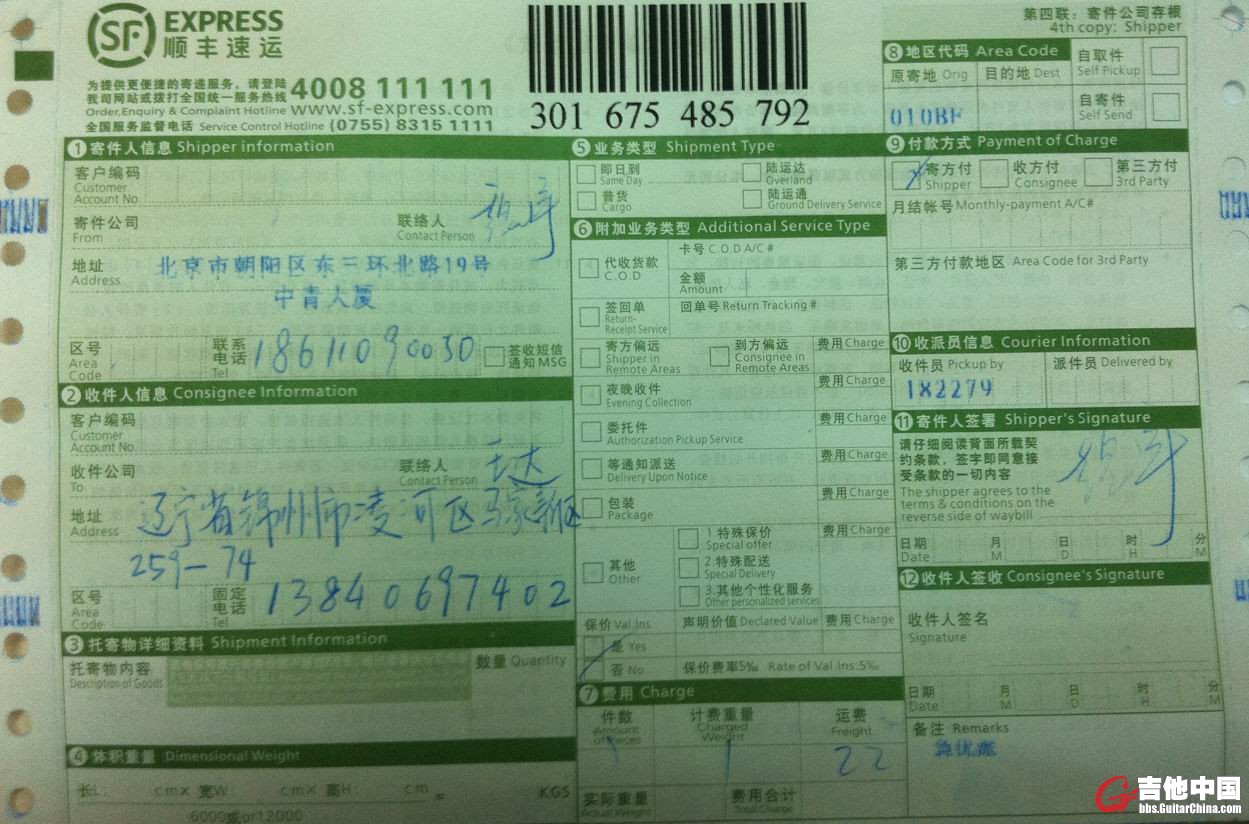 SF EXPRESS
顺丰速运
为提供更便捷的寄递服务，请登陆
我司网站或拨打全国统一服务热线 4008 111 111
Order,Enquiry & Complaint Hotline www.sf-express.com
全国服务监督电话 Service Control Hotline (0755) 8315 1111
301 675 485 792
第四联：寄件公司存根
4th copy: Shipper
⑧地区代码 Area Code
原寄地 Orig 目的地 Dest
010BF
自取件
Self Pickup
自寄件
Self Send
①寄件人信息 Shipper information
客户编码
Customer
Account No.
寄件公司
From
联络人
Contact Person
地址
Address
北京市朝阳区东三环北路19号
中青大厦
区号
Area
Code
联系
电话
Tel
18611090030
签收短信
通知MSG
②收件人信息 Consignee Information
客户编码
Customer
Account No.
收件公司
To
联络人
Contact Person
地址
Address
辽宁省锦州市凌河区马家新区
259-74
区号
Area
Code
固定
电话
Tel
13840697402
③托寄物详细资料 Shipment Information
托寄物内容
Description of Goods
数量 Quantity
④体积重量 Dimensional Weight
长L: cm× 宽W: cm× 高H: cm KGS
6000或or12000
⑤业务类型 Shipment Type
即日到
Same Day
陆运达
Overland
普货
Cargo
陆运通
Ground Delivery Service
⑥附加业务类型 Additional Service Type
代收货款
C.O.D
卡号 C.O.D A/C #
金额
Amount
签回单
Return-
Receipt Service
回单号 Return Tracking #
寄方偏远
Shipper in
Remote Areas
到方偏远
Consignee in
Remote Areas
费用 Charge
夜晚收件
Evening Collection
费用 Charge
委托件
Authorization Pickup Service
费用 Charge
等通知派送
Delivery Upon Notice
费用 Charge
包装
Package
费用 Charge
其他
Other
1.特殊保价
Special offer
费用 Charge
2.特殊配送
Special Delivery
3.其他个性化服务
Other personalized services
保价 Val.Ins
声明价值 Declared Value
费用 Charge
是 Yes
否 No
保价费率5‰ Rate of Val Ins:5‰
⑦费用 Charge
件数
Amount
of Pieces
计费重量
Charged
Weight
运费
Freight
1
1
22
实际重量
Actual Weight
费用合计
Total Charge
⑨付款方式 Payment of Charge
寄方付
Shipper
收方付
Consignee
第三方付
3rd Party
月结帐号 Monthly-payment A/C#
第三方付款地区 Area Code for 3rd Party
⑩收派员信息 Courier Information
收件员 Pickup by
派件员 Delivered by
182279
⑪寄件人签署 Shipper's Signature
请仔细阅读背面所载契
约条款，签字即同意接
受条款的一切内容
The shipper agrees to the
terms & conditions on the
reverse side of waybill
日期 月 日 时 分
Date M D H M
⑫收件人签收 Consignee's Signature
收件人签名
Signature
日期 月 日 时 分
Date M D H M
备注 Remarks
吉他中国
bbs.GuitarChina.com